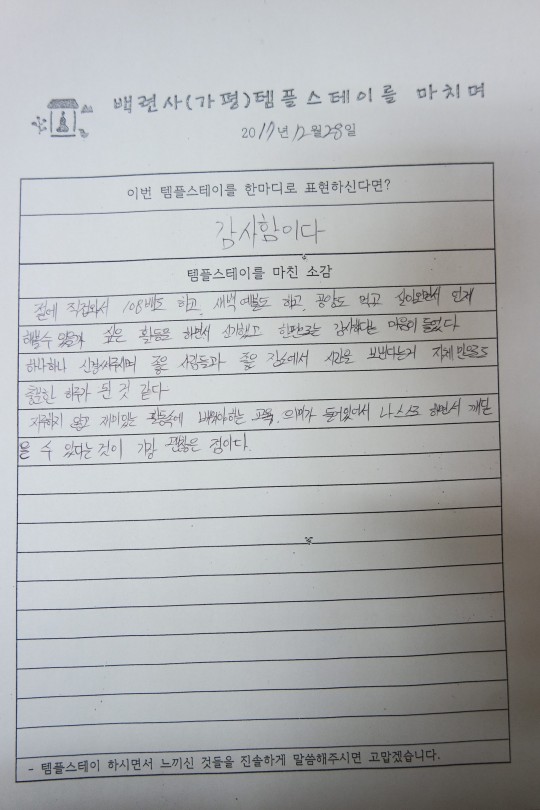 백련사(가평)템플스테이를 마치며
2017년 12월 28일
이번 템플스테이를 한마디로 표현하신다면?
감사함이다
템플스테이를 마친 소감
절에 직접와서 108배도 하고, 새벽 예불도 하고, 공양도 먹고 살아오면서 언제
해볼수 있을까 싶은 활동을 하면서 신기했고 한편으로는 감사하다는 마음이 들었다
하나하나 신경써주시며 좋은 사람들과 좋은 장소에서 시간을 보낸다는거 자체만으로
충분한 하루가 된 것 같다
지루하지 않고 재미있는 활동속에 배워야하는 교육, 의미가 들어있어서 나 스스로 하면서 깨달
을 수 있다는 것이 가장 괜찮은 점이다.
- 템플스테이 하시면서 느끼신 것들을 진솔하게 말씀해주시면 고맙겠습니다.